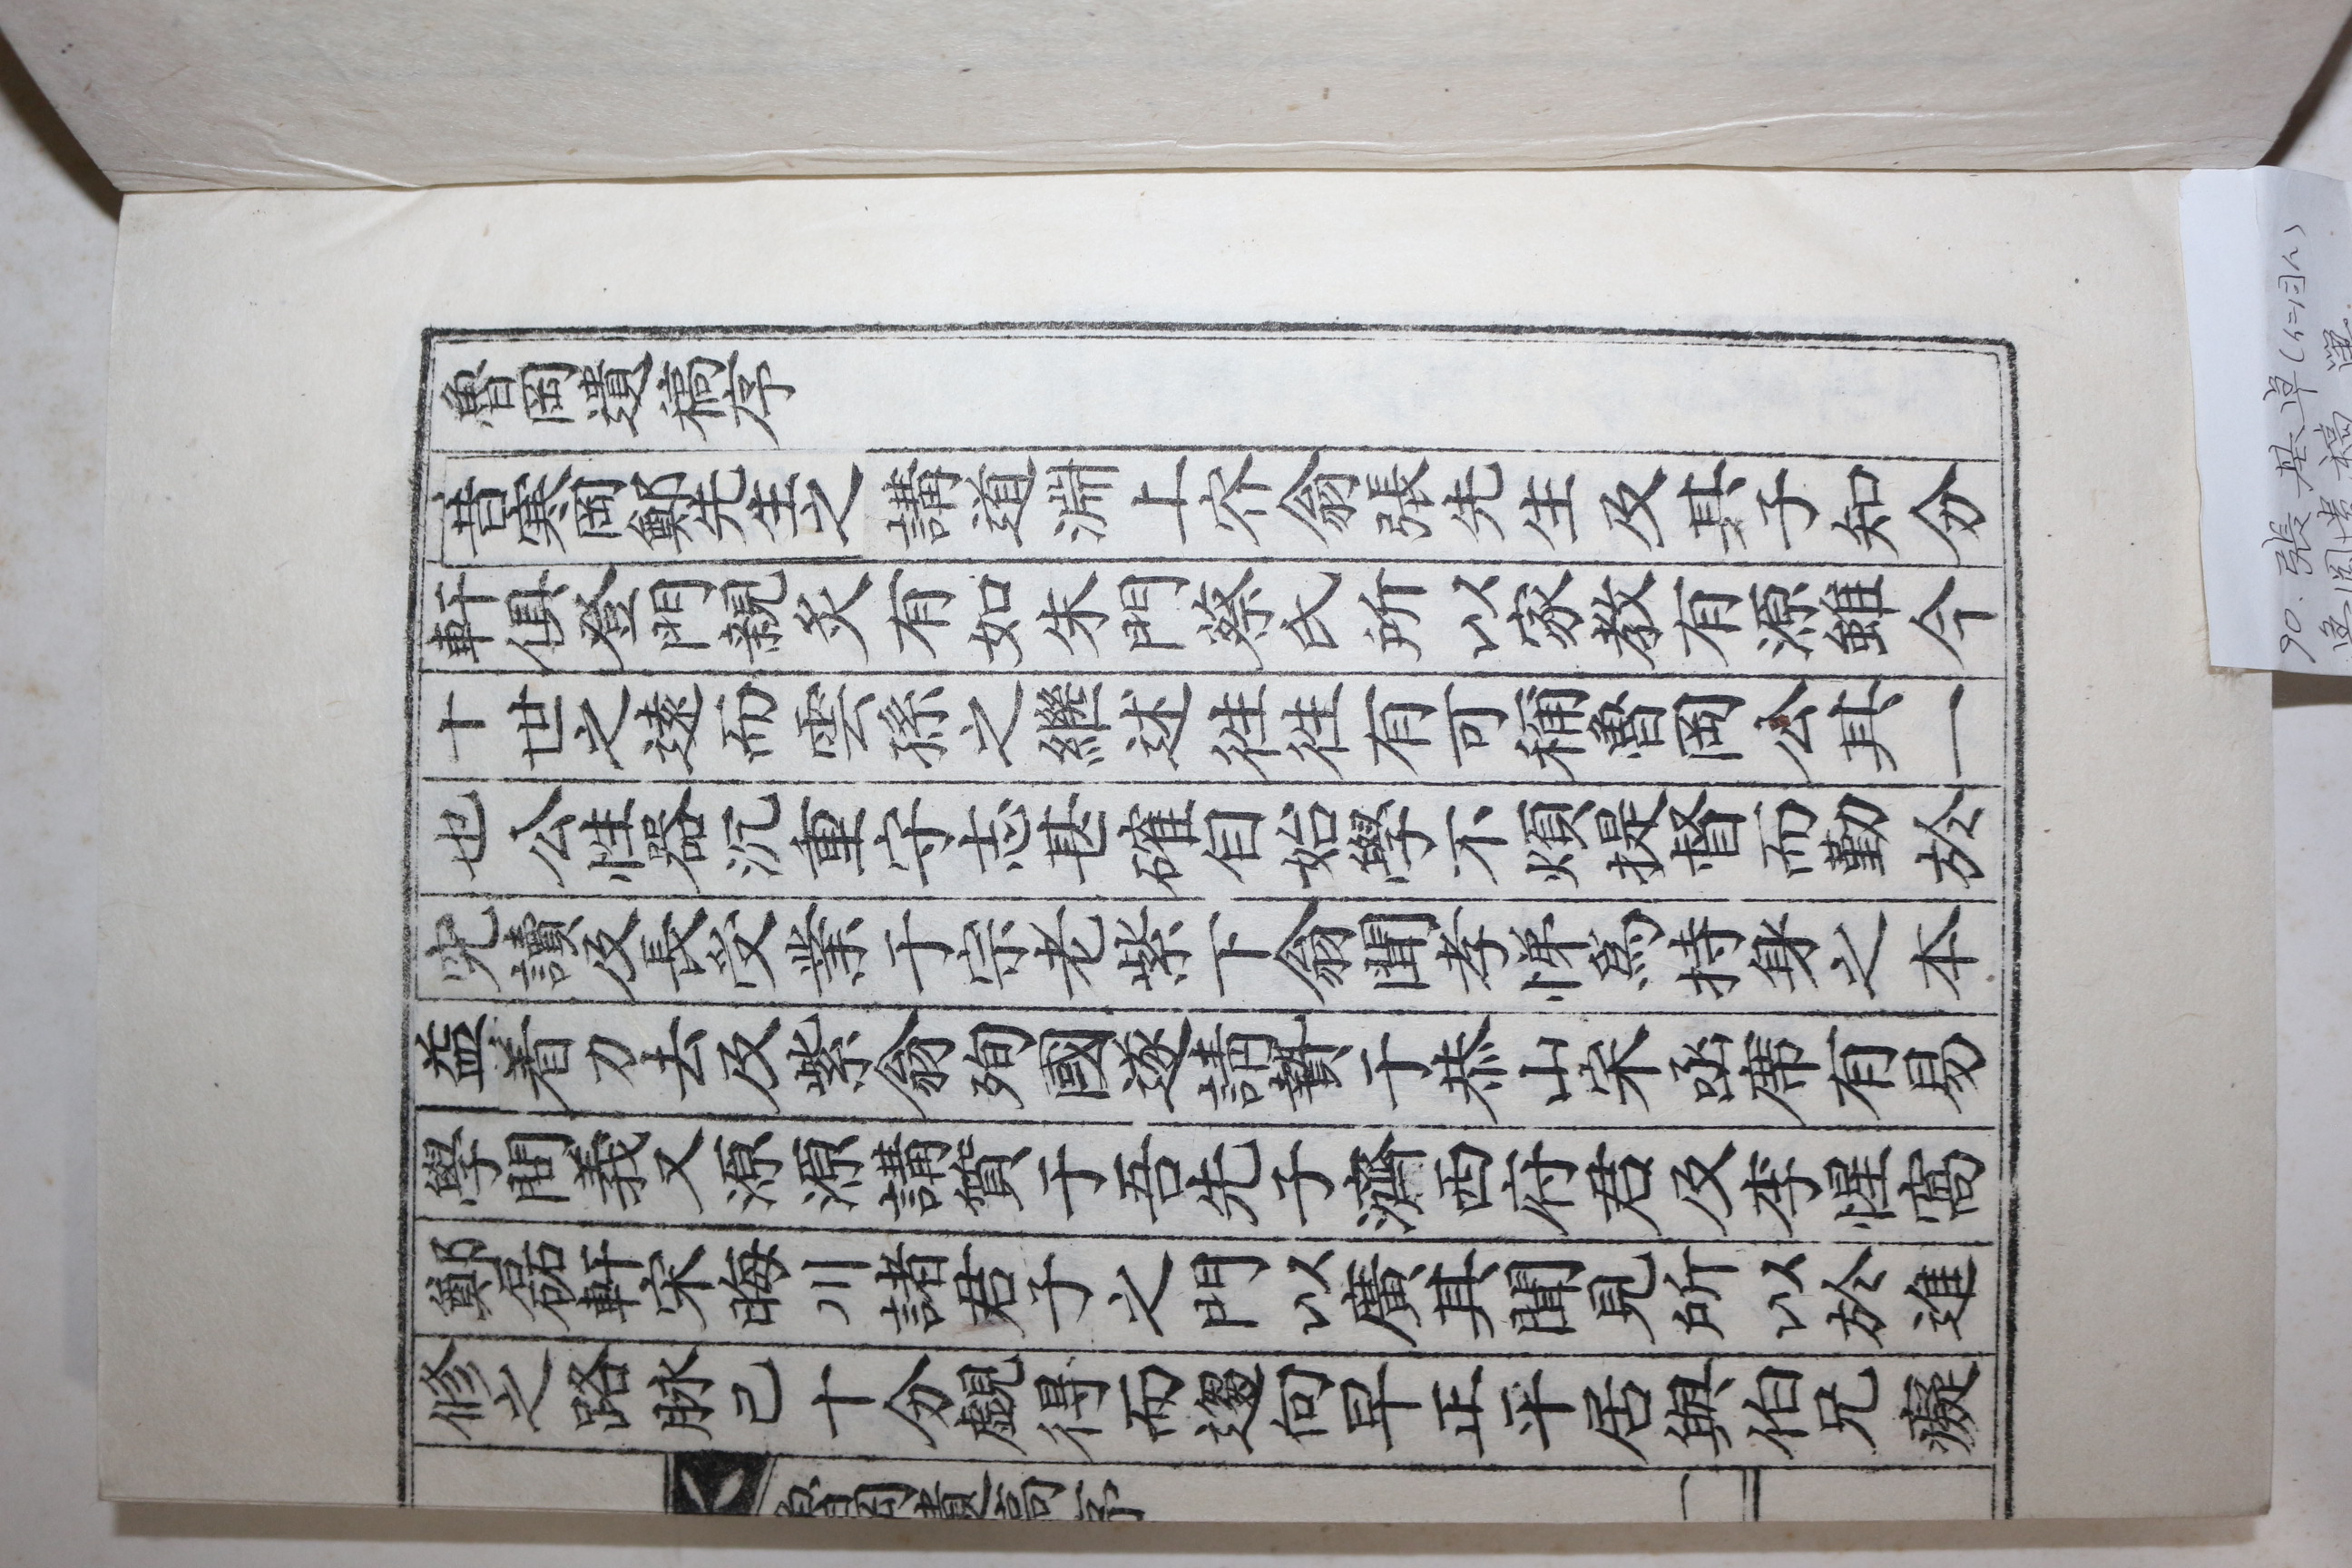 魯岡遺稿序
昔寒岡鄭先生之講道淵上夰翁張先生及其子知分
軒俱登門親炙有如朱門蔡氏所以家教有源雖今
十世之遠而雲孫之繼述徃徃有可稱魯岡公其一
也公性器沉重守志甚確自始學不煩提督而勤於
究讀及長受業于宗老紫下翁聞孝悌爲持身之本
益着力去及紫翁殉國遂請贄于恭山宋函席有易
學問義又源源講質于吾先子濟西府君及李惺窩
鄭磊軒宋晦川諸君子之門以廣其聞見所以於進
修之路脉己十分覷得而趨向早正平居與伯兄癡
魯岡遺稿序
一
90. 張基卓
魯岡遺稿